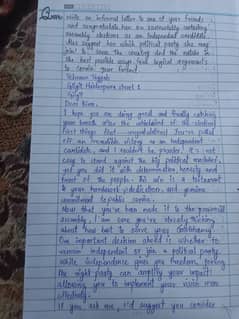 write an informal letter to one of your friends
and congratulate him on successfully contesting
assembly elections as an independent candidate
Also suggest him which political party she may
join to serve the country and the nation in
the best possible ways. Find logical arguments
to convince your friend.
Gilgit street 1
Gilgit
Dear
I hope you are doing good and finally catching
your breath after the of the election
First things first You've pulled
off an incredible victory as an independent
candidate, and I couldn't be prouder. It's not
easy to stand against the big political machines,
yet you did it with determination honesty and
heart of the people. This win is a testament
to your hardwork, dedication, and genuine
commitment to public service.
Now that you've been made it to the provincial
assembly, I am sure you're already thinking
about how best to serve your constituency.
One important decision ahead is whether to
remain independent or join a political party.
While independence gives you freedom, joining
the right party can amplify your impact
allowing you to implement your vision more
effectively.
If you ask me, I'd suggest you consider